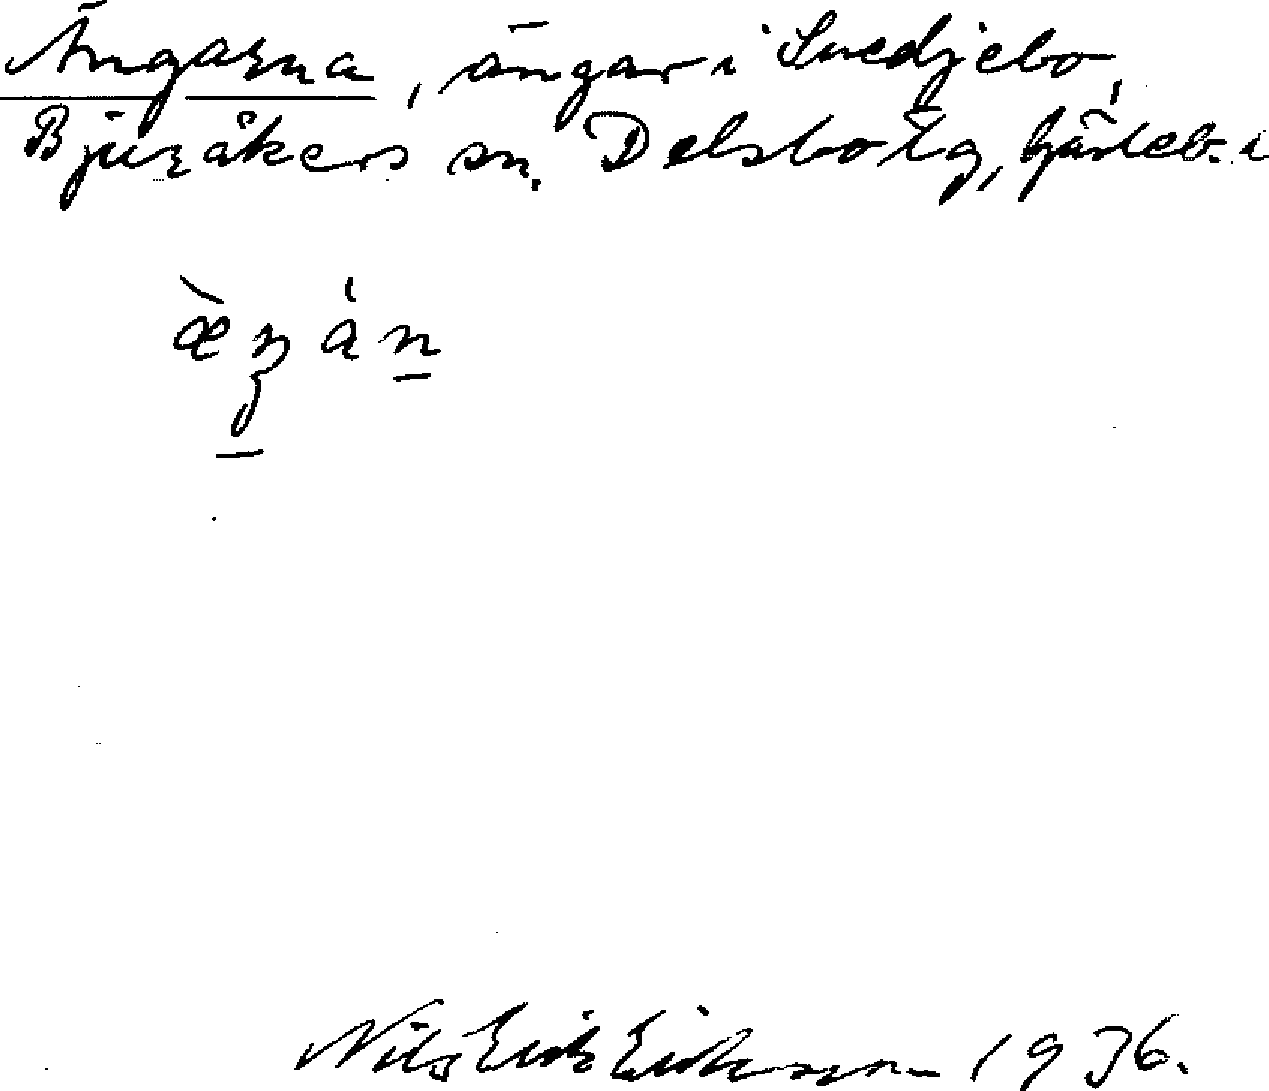 Ängarna, ängar i Svedjebo,
Bjuråkers sn. Delsbo tg, Gävleb. l
æ̀ŋáṉ
Nils Erik Eriksson 1936.